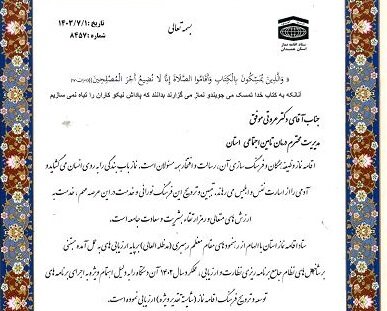 بسمه تعالی
تاریخ: ۱۴۰۳/۷/۱
شماره: ۸۴۵۷
ستاد اقامه نماز
استان همدان
« وَالَّذِينَ يُمَسِّكُونَ بِالْكِتَابِ وَأَقَامُوا الصَّلَاةَ إِنَّا لَا نُضِيعُ أَجْرَ الْمُصْلِحِينَ»
آنانکه به کتاب خدا تمسک می جویندو نماز می گزارند بدانند که پاداش نیکو کاران را تباه نمی سازیم
جناب آقای دکتر عروقی موفق
مدیریت محترم درمان تامین اجتماعی استان
اقامه نماز وظیفه همگان و فرهنگ سازی آن، رسالت و افتخار همه مسئولان است. نماز باب بندگی را به روی انسان می گشاید و
آدمی را از اسارت نفس و ابلیس می رهاند، تبیین و ترویج این فرهنگ نورانی و خدمت در این عرصه مهم، خدمت به
ارزش های متعالی و رمز ارتقاء بشریت و سعادت جامعه است.
ستاد اقامه نماز استان با الهام از رهنمودهای مقام معظم رهبری (مدظله العالی) بر پایه ارزیابی های به عمل آمده مبتنی
بر شاخص های نظام جامع برنامه ریزی نظارت و ارزیابی، عملکرد سال ۱۴۰۲ آن دستگاه را به دلیل اهتمام ویژه به اجرای برنامه های
توسعه و ترویج فرهنگ اقامه نماز (شایسته تقدیر ویژه) ارزیابی نموده است.